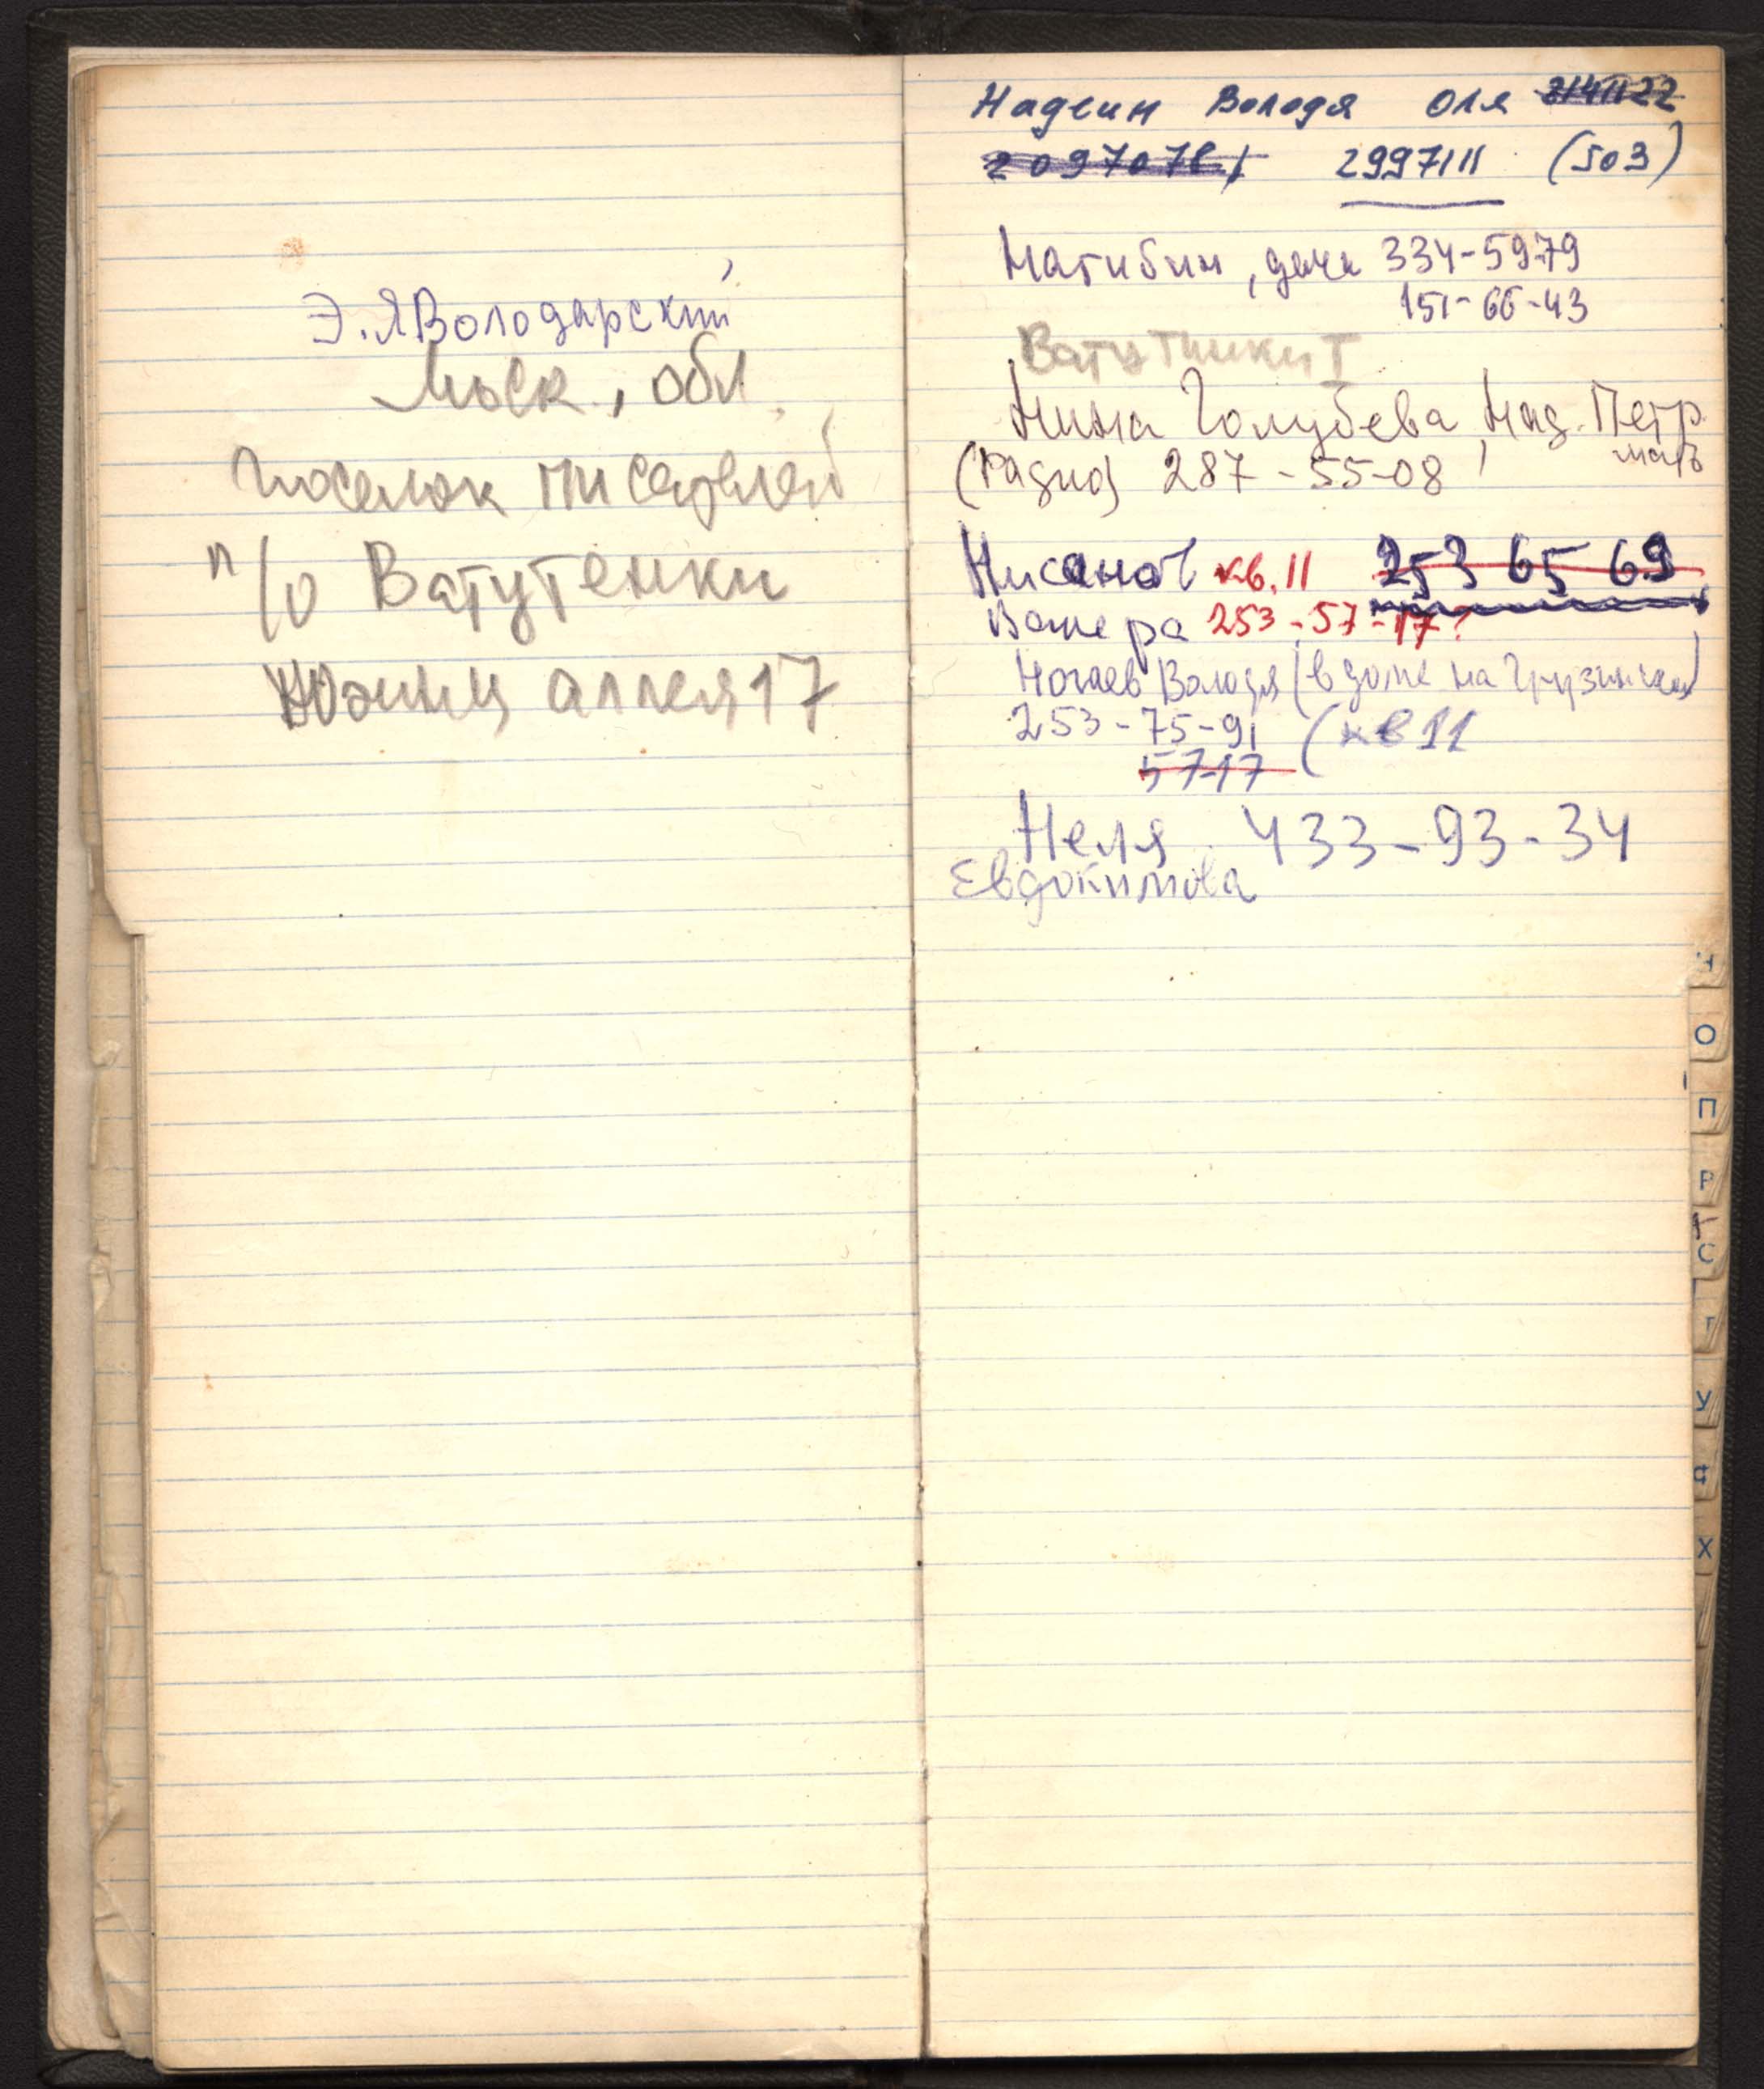 Э.ЯВолодарский
Моск., обл.
поселок писателей
п/о Ватутенки
Южная аллея 17
Надеин Володя Оля 2141122
2097078 2997111 (503)
Нагибин, дача 334-5979
151-66-43
Ватутинки I
Нина Голубева, Над. Петр.
мать
(радио) 287-55-08
Нисанов кв. 11 253 65 69
Валера 253-57-17?
Ногаев Володя (в доме на Грузинской)
253-75-91 (кв 11
57-17
Неля 433-93-34
Евдокимова
Н
О
П
Р
С
Т
У
Ф
Х